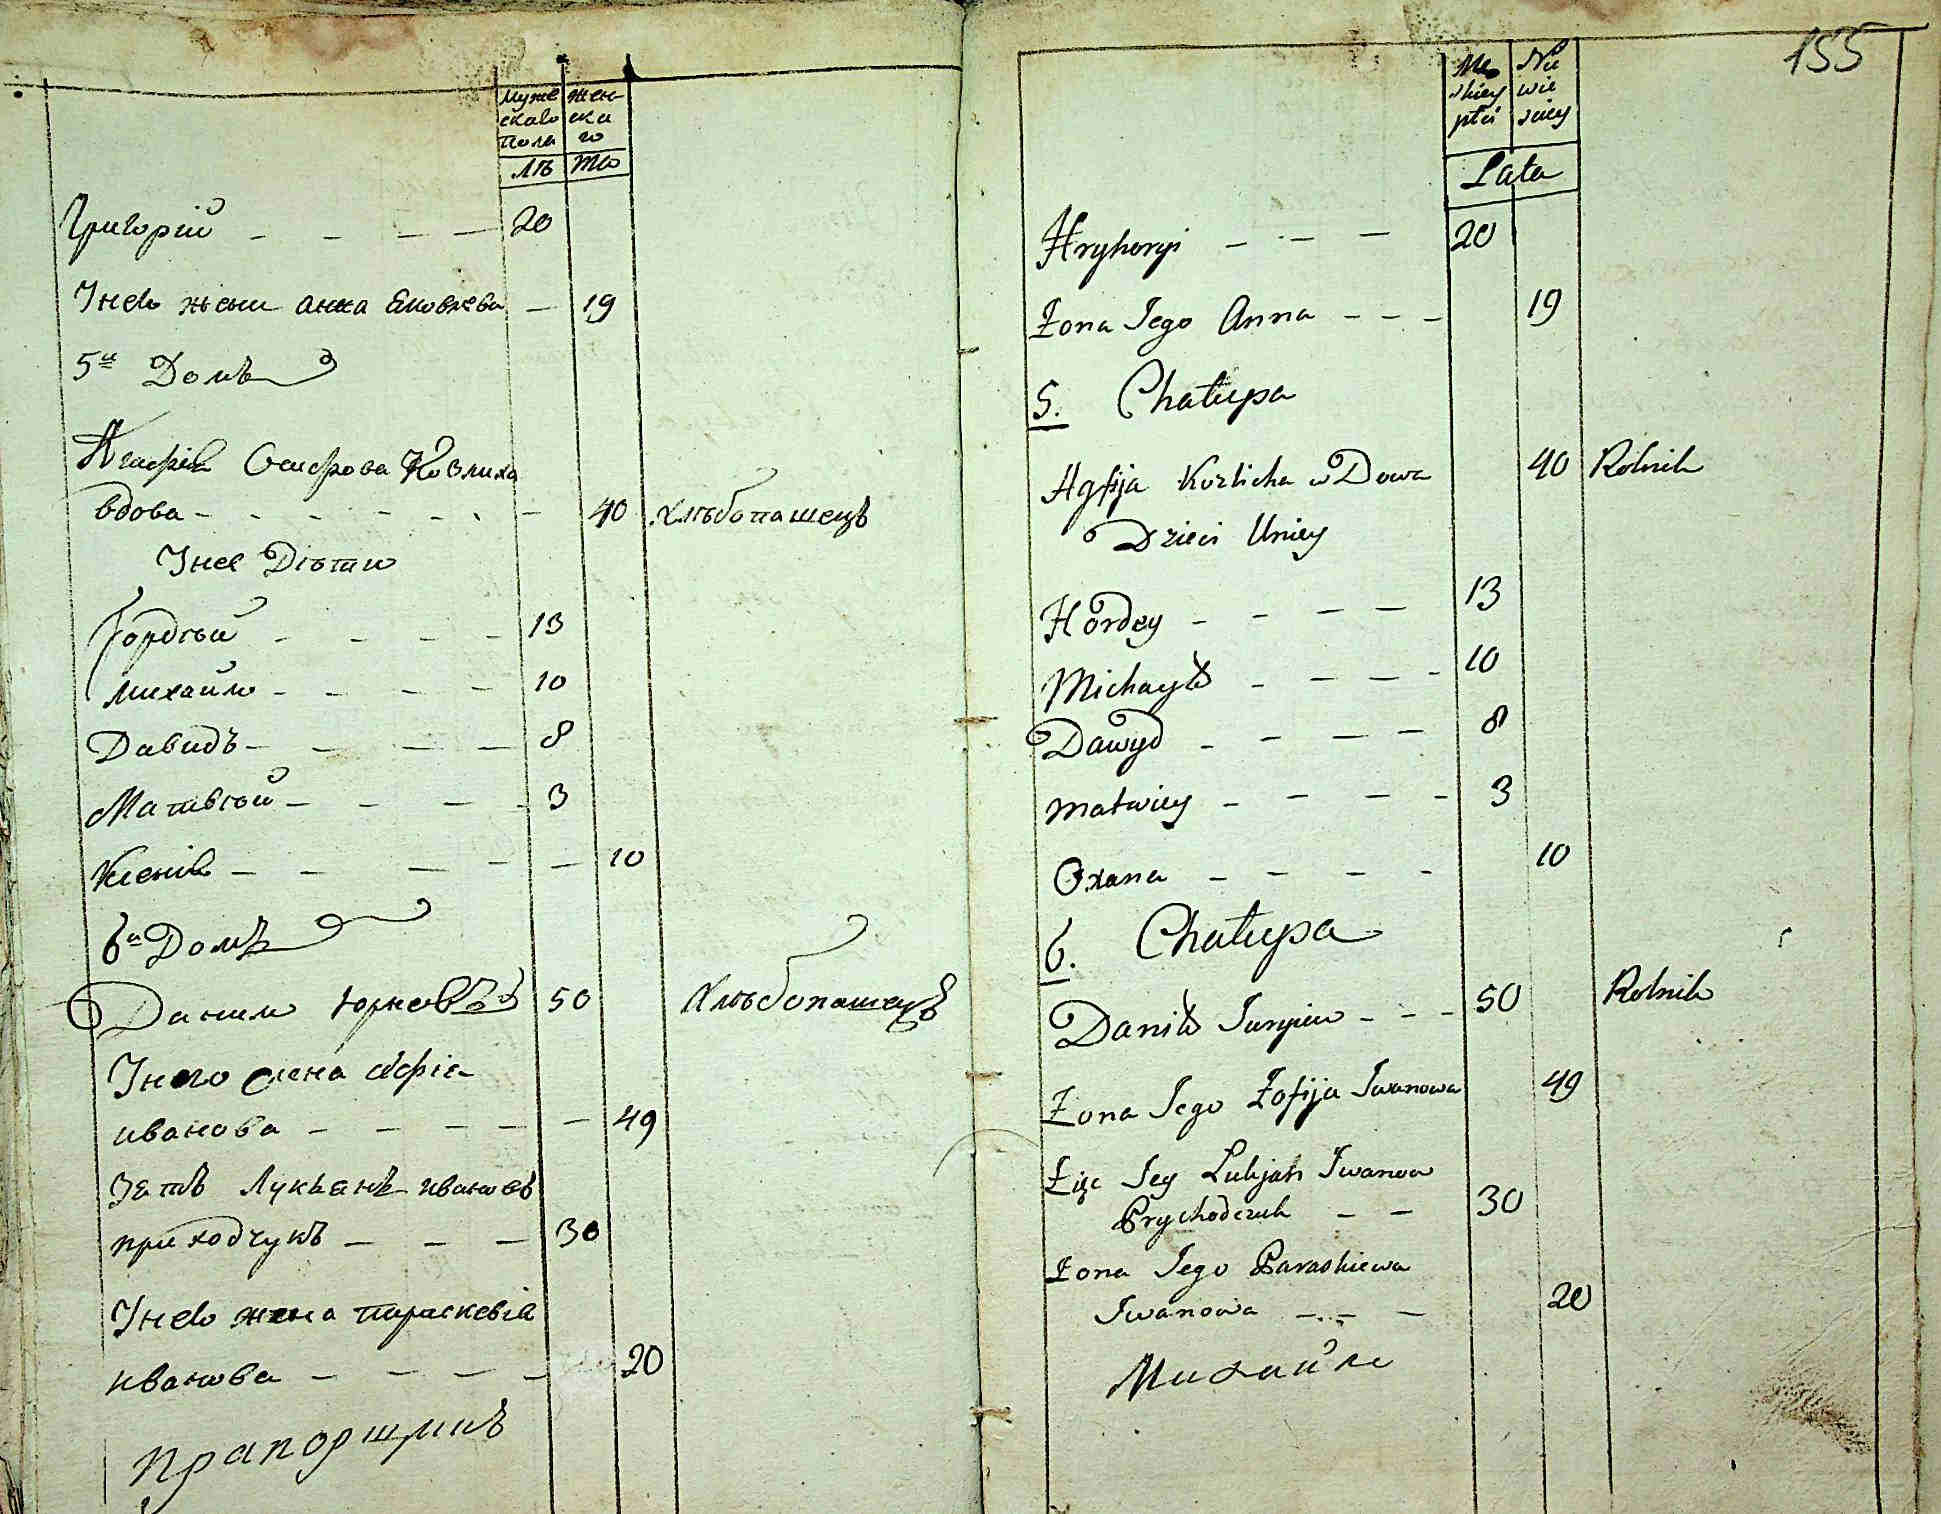 Мужескаго пола
женскаго
лѣ то
Григорій 20
Інего жена анна Яковлева 19
5й Домъ
Агафія Осифова Козлиха
вдова 40 хлѣбопашецъ
Інее Дѣти
Гордѣй 13
михайло 10
Давидъ 8
Матвѣй 3
Ксенія 10
6й Домъ
Данило Юрковъ 50 Хлѣбопашецъ
Інего жена
иванова 49
Зять Лукьянъ ивановъ
приходчукъ 30
Інего жена параскевія
иванова 20
прапорщикъ
155
Męskiey płci
Niewieściey
Lata
Hryhoryi 20
Żona Jego Anna 19
5. Chałupa
Agfija Kozlicha wDowa 40 Rolnik
Dzieci Uniey
Hordey 13
Michayło 10
Dawyd 8
matwiey 3
Oxana 10
6. Chałupa
Daniło Juryiew 50 Rolnik
Żona Jego Zofija Iwanowa 49
Zięć Jey Lukjan Iwanow
Prychodczuk 30
Żona Jego Paraskiewa
Iwanowa 20
Михайло